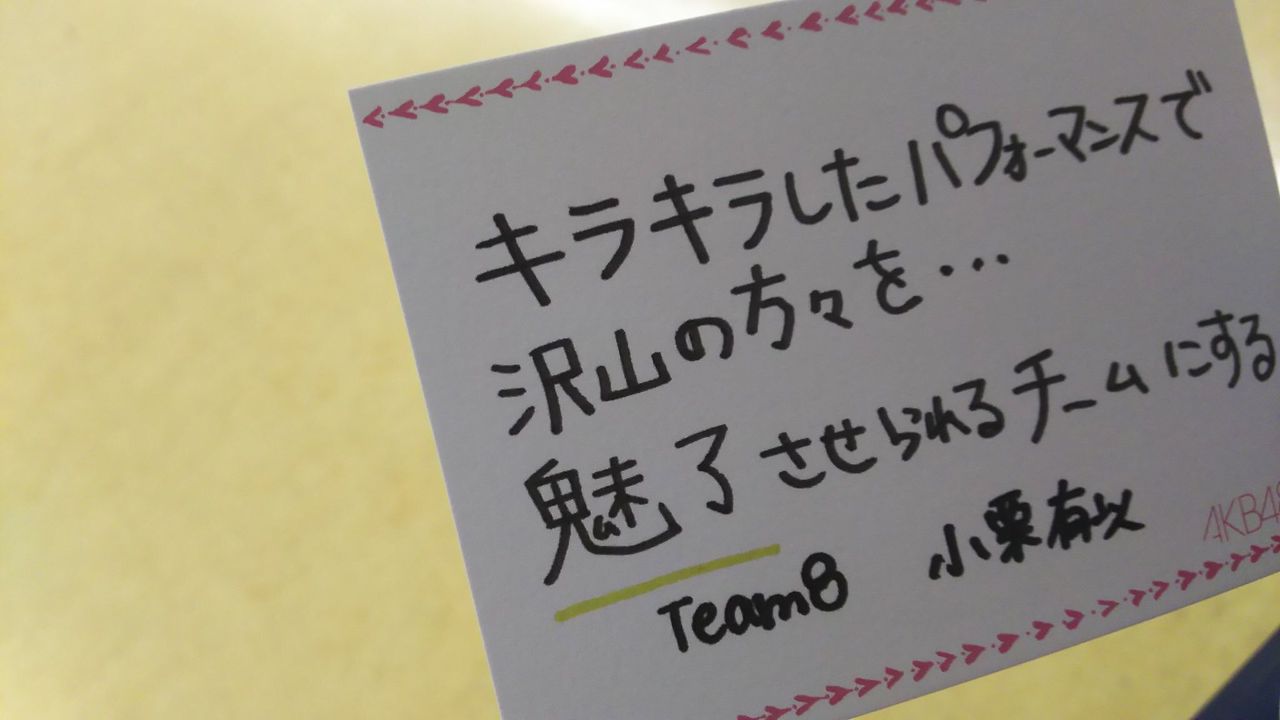 キラキラしたパフォーマンスで
沢山の方々を...
魅了させられるチームにする
Team8 小栗有以
AKB48